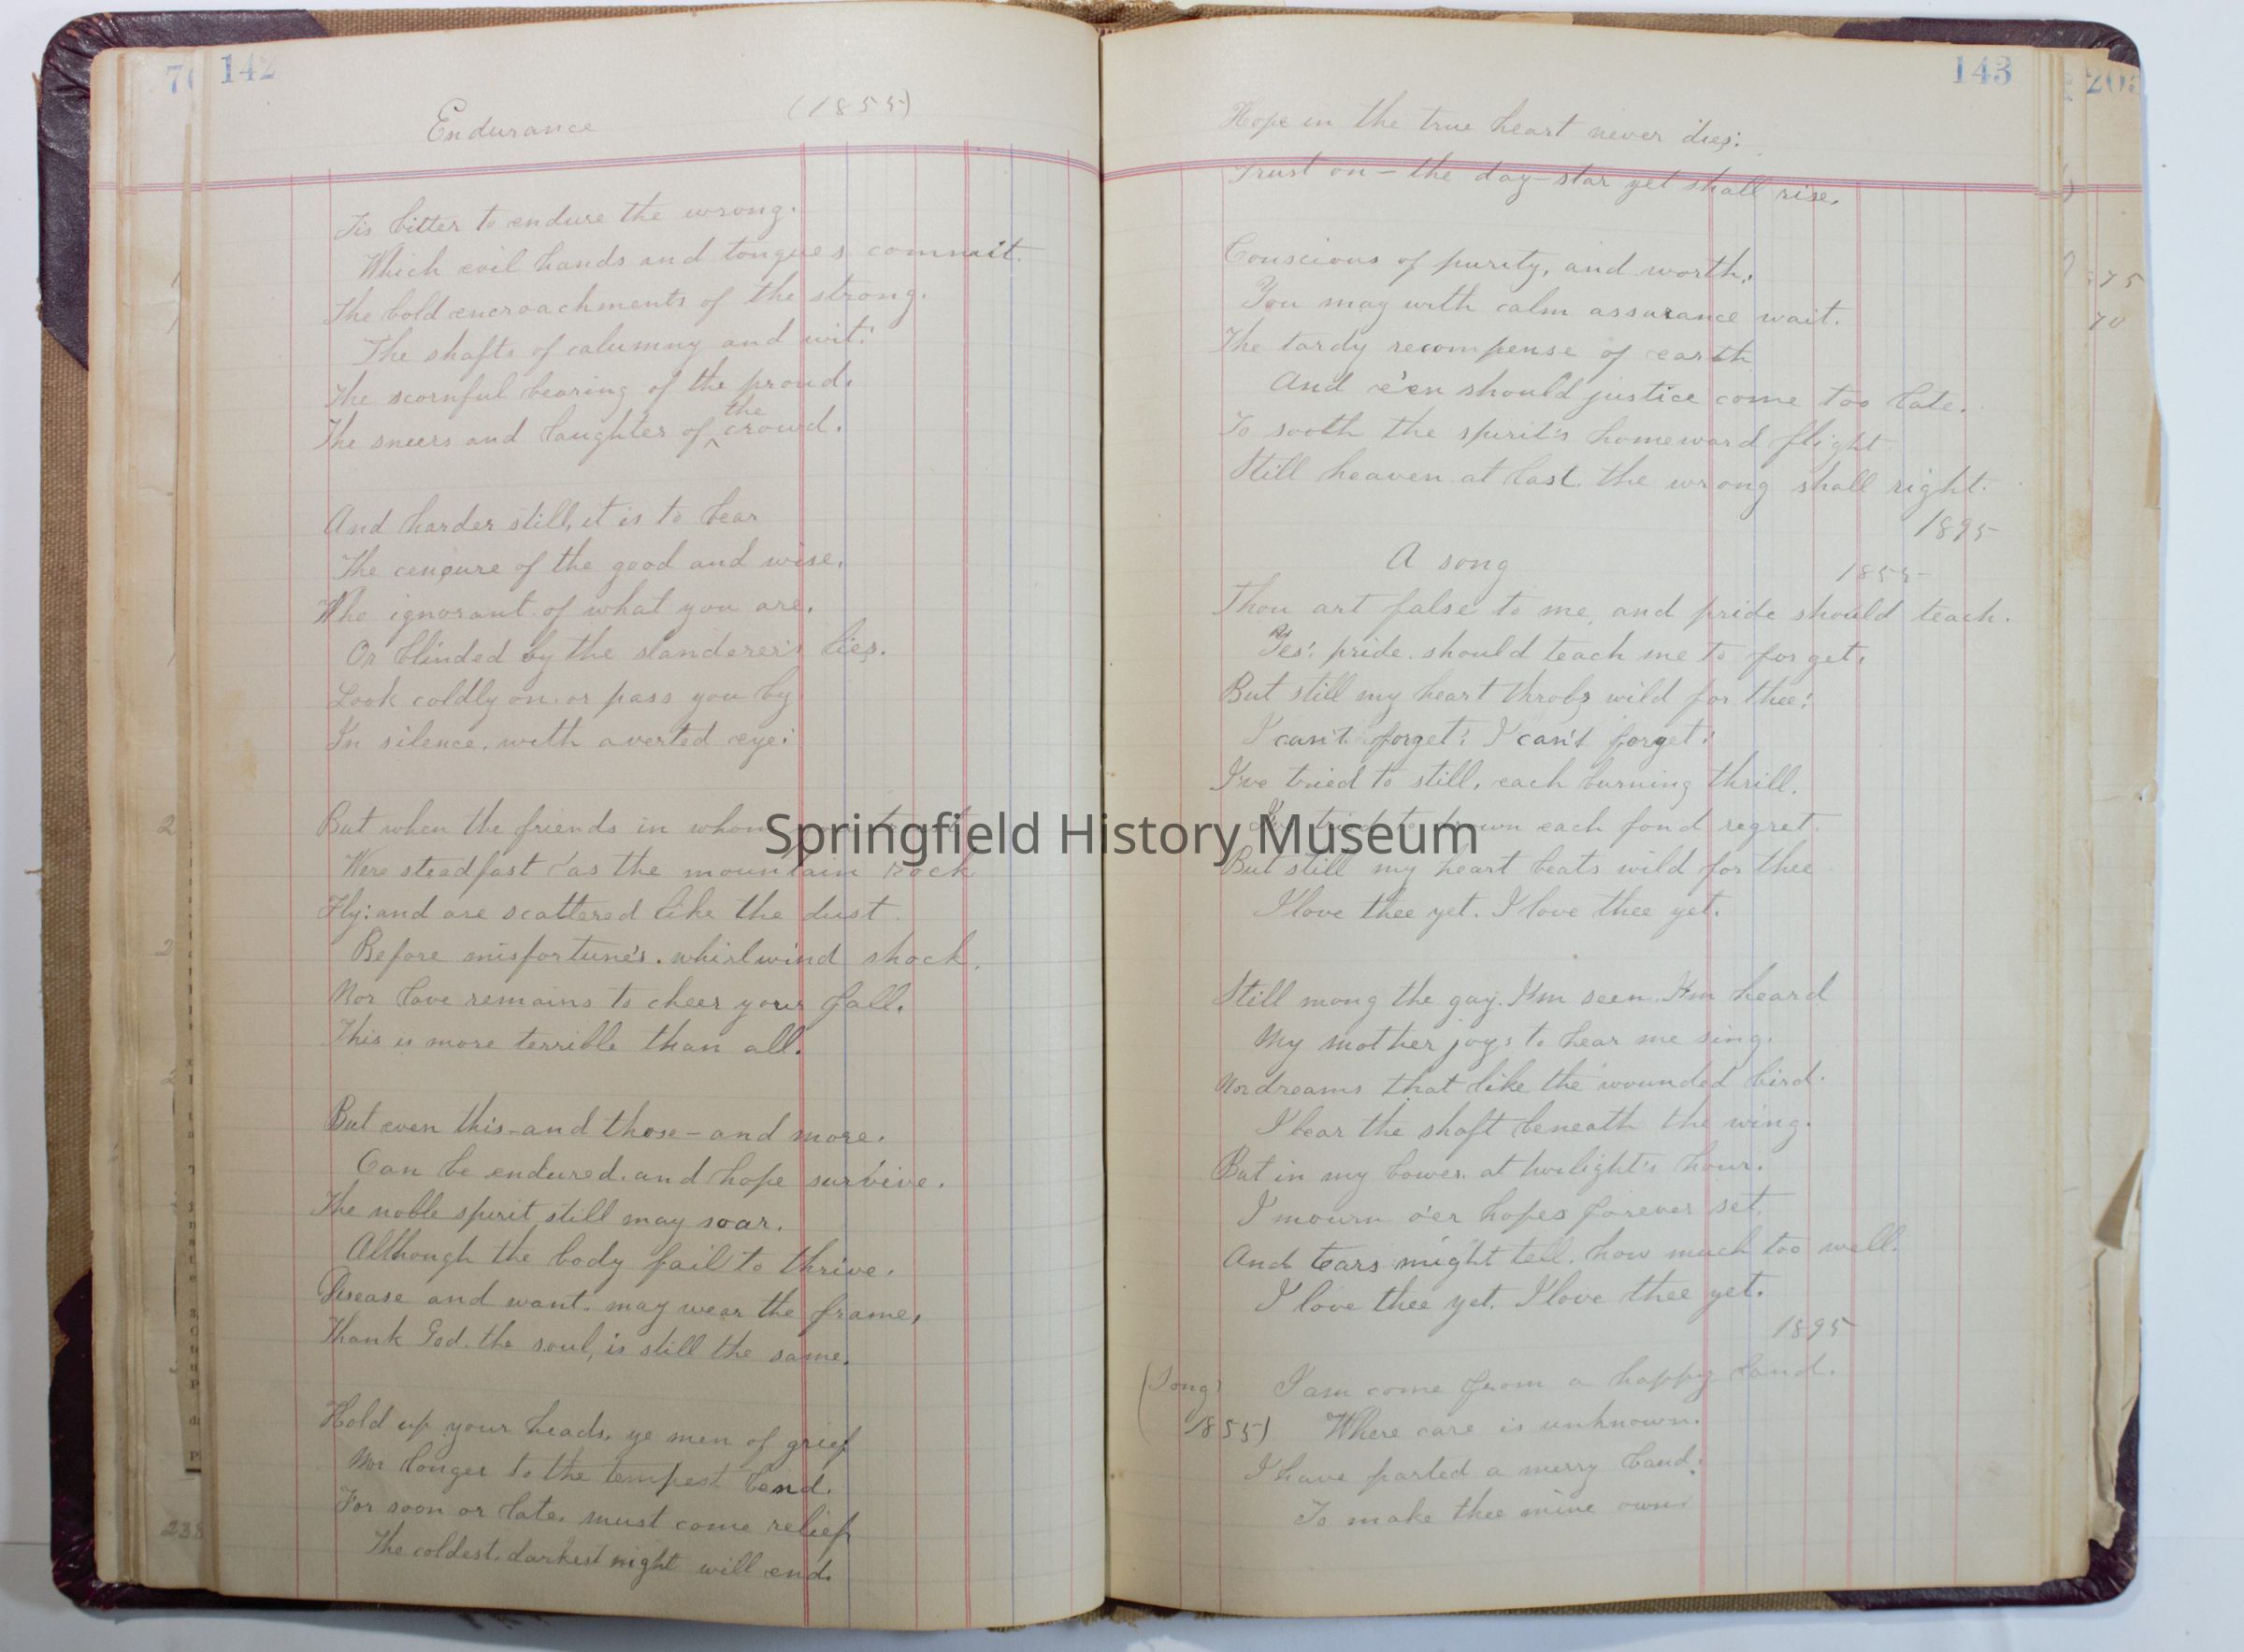 142
Endurance (1855)
Tis bitter to endure the wrong.
Which evil hands and tongues commit.
The bold encroachments of the strong.
The shafts of calumny and wit!
The scornful bearing of the proud.
The sneers and laughter of ^the crowd.
And harder still, it is to bear
The cencure of the good and wise.
Who ignorant of what you are,
Or blinded by the slanderer's lies.
Look coldly on. or pass you by
In silence, with averted eye:
But when the friends in whom your trust
Were steadfast as the mountain rock
Fly: and are scattered like the dust.
Before misfortune's. whirlwind shock,
Nor love remains to cheer your fall.
This is more terrible than all.
But even this-and those-and more.
Can be endured. and hope survive.
The noble spirit still may soar.
Although the body fail to thrive.
Disease and want. may wear the frame,
Thank God. the soul, is still the same.
Hold up your heads, ye men of grief
Nor longer to the tempest bend.
For soon or late, must come relief
The coldest, darkest night will end.
143
Hope in the true heart never dies:
Trust on - the day-star yet shall rise.
Conscious of purity, and worth,
You may with calm assurance wait.
The tardy recompense of earth
And e'en should justice come too late.
To sooth the spirit's homeward flight
Still heaven at last. the wrong shall right.
1895
A song 1855
Thou art false to me, and pride should teach.
Yes! pride. should teach me to forget,
But still my heart throbs wild for thee!
I can't forget! I can't forget!
I've tried to still, each burning thrill.
I've tried to drown each fond regret.
But still my heart beats wild for thee
I love thee yet. I love thee yet.
Still mong the gay. I'm seen. I'm heard
My mother joys to hear me sing.
Nor dreams that like the wounded bird.
I bear the shaft beneath the wing.
But in my bower. at twilight's hour.
I mourn o'er hopes forever set,
And tears might tell. how much too well.
I love thee yet. I love thee yet.
1895
(Song) I am come from a happy land.
(1855) Where care is unknown.
I have parted a merry band.
To make thee mine own
Springfield History Museum